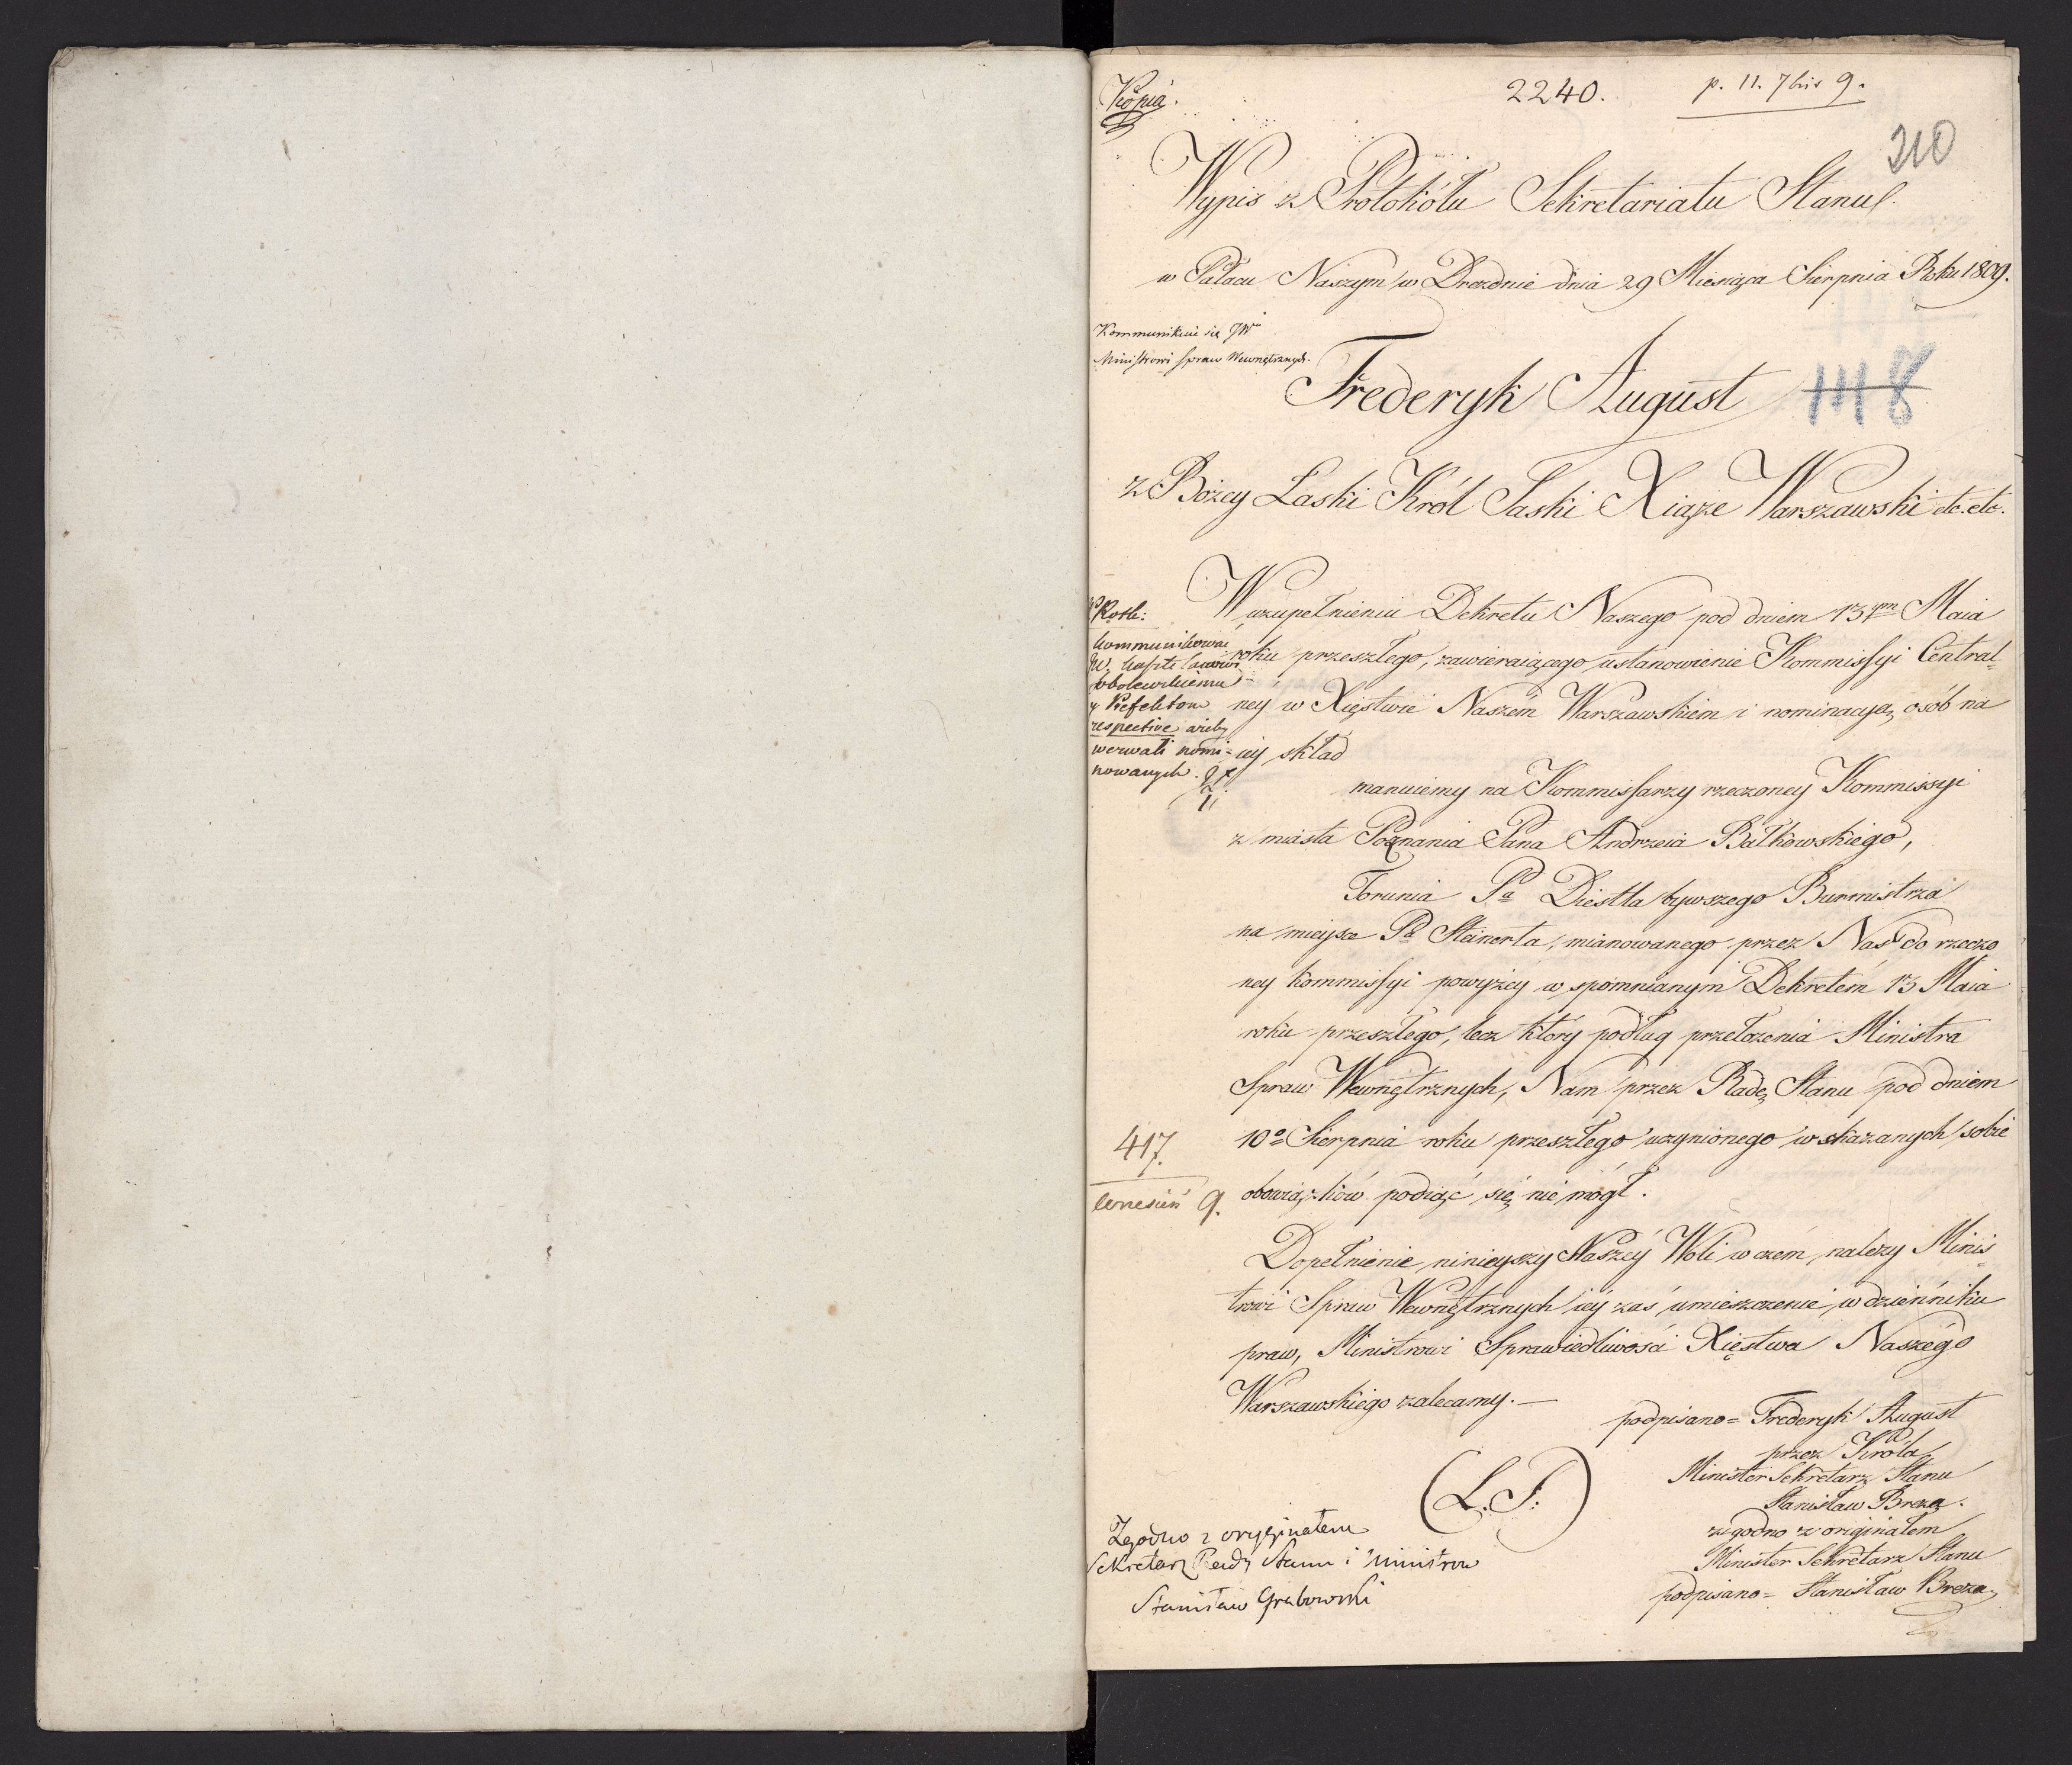 Kopia.
2240.
p. 11. 7bris 9.
210
Wypis z Protokółu Sekretariatu Stanu.
w Pałacu Naszym w Dreznie dnia 29 Miesiąca Sierpnia Roku 1809.
Kommunikuie się JWu
Ministrowi Spraw Wewnętrznych.
Frederyk August
118
z Bożey Łaski Król Saski Xiąże Warszawski etc. etc.
W uzupełnieniu Dekretu Naszego pod dniem 13ym Maia
roku przeszłego, zawieraiącego ustanowienie Kommissyi Central=
ney w Xięstwie Naszém Warszawskiém i nominacyą osób na
iey skład
kommunikować
Prefektom
respective
wezwali nomi=
nowanych.
mianuiemy na Kommissarzy rzeczoney Kommissyi
z miasta Poznania Pana Andrzeia Bałkowskiego,
Torunia Pa Diestla bywszego Burmistrza
na mieysce Pa Steinerta, mianowanego przez Nas do rzeczo
ney kommissyi powyżey wspomnianym Dekretém 13 Maia
roku przeszłego, lecz który podług przełożenia Ministra
Spraw Wewnętrznych, Nam przez Radę Stanu pod dniem
10o Sierpnia roku przeszłego uczynionego wskazanych sobie
obowiązków podiąć się nie mógł.
417.
wrzesień 9.
Dopełnienie ninieyszy Naszéy Woli w czém należy Minis=
trowi Spraw Wewnętrznych iéy zaś umieszczenie w dzienniku
praw, Ministrowi Sprawiedliwości Xięstwa Naszégo
Warszawskiego zalecamy.—
podpisano= Frederyk August
przez Króla
Minister Sekretarz Stanu
Stanisław Breza.
(L.S.)
zgodno z originałem
Minister Sekretarz Stanu
podpisano= Stanisław Breza
Zgodno z oryginałem
Sekretarz Rady Stanu i Ministrow
Stanisław Grabowski